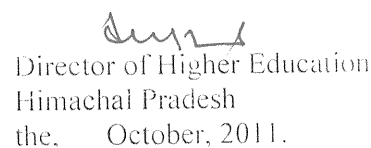 Director of Higher Education
Himachal Pradesh
the, October, 2011.